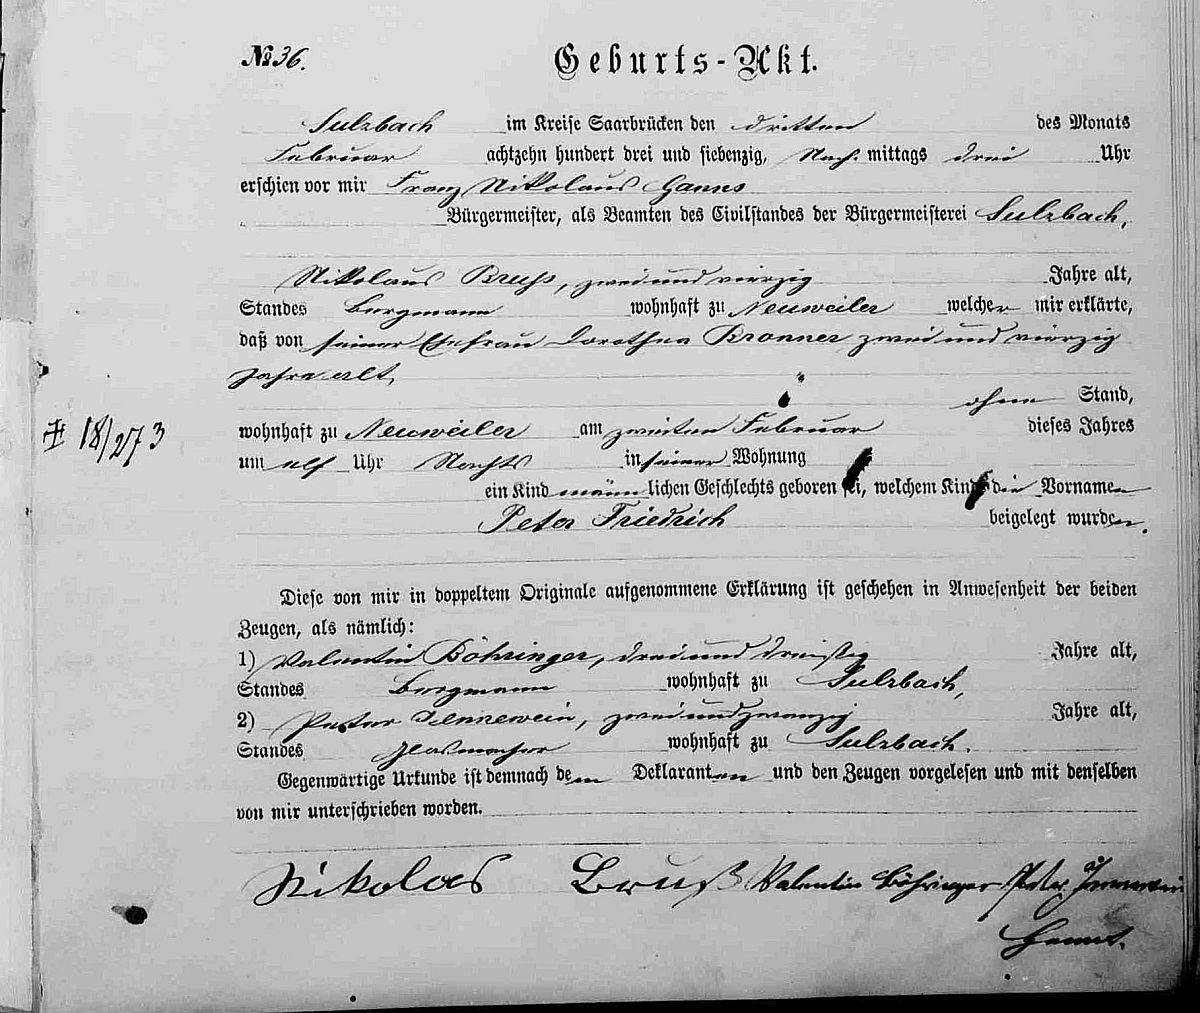 № 36.
Geburts-Akt.
Sulzbach im Kreise Saarbrücken den dritten des Monats
Februar achtzehn hundert drei und siebenzig, Nach. mittags drei Uhr
erschien vor mir Franz Nikolaus Hanns
Bürgermeister, als Beamten des Civilstandes der Bürgermeisterei Sulzbach,
Nikolaus Bruß, zwei und vierzig Jahre alt,
Standes Bergmann wohnhaft zu Neuweiler welcher mir erklärte,
daß von seiner Ehefrau Dorothea Bronner zwei und vierzig
Jahre alt,
ohne Stand,
wohnhaft zu Neuweiler am zweiten Februar dieses Jahres
‡ 18/2 73
um elf Uhr Nachts in seiner Wohnung
ein Kind männlichen Geschlechts geboren sei, welchem Kind die Vornamen
Peter Friedrich beigelegt wurden.
Diese von mir in doppeltem Originale aufgenommene Erklärung ist geschehen in Anwesenheit der beiden
Zeugen, als nämlich:
1) Valentin Böhringer, drei und dreißig Jahre alt,
Standes Bergmann wohnhaft zu Sulzbach,
2) Peter Jennewein, zwei und zwanzig Jahre alt,
Standes Glasmacher wohnhaft zu Sulzbach.
Gegenwärtige Urkunde ist demnach dem Deklaranten und den Zeugen vorgelesen und mit denselben
von mir unterschrieben worden.
Nikolas Bruß Valentin Böhringer Peter Jennewein